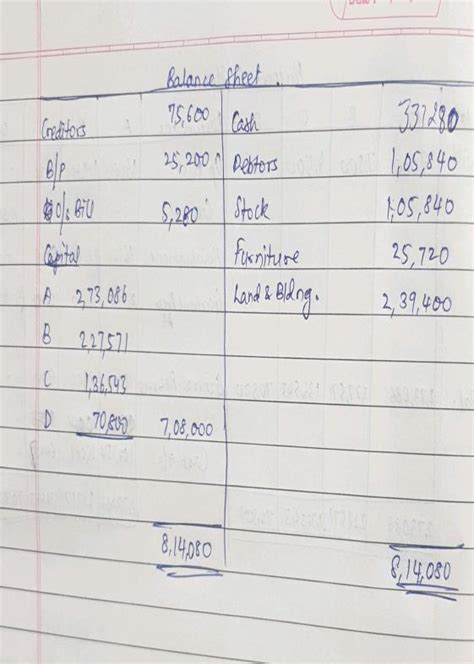 Balance Sheet.
Creditors 75,600 Cash 337280
B/P 25,200 Debtors 1,05,840
5,280 Stock 1,05,840
Capital Furniture 25,720
A 2,73,086 Land & Bldng. 2,39,400
B 2,27,571
C 1,36,543
D 70,800 7,08,000
8,14,080 8,14,080